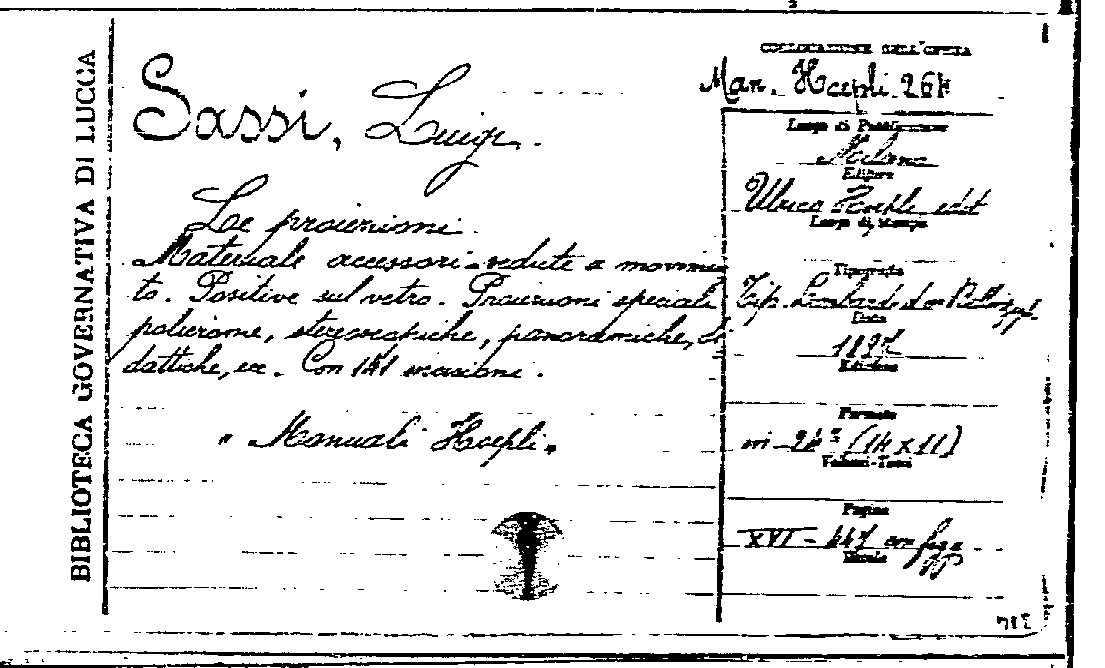 BIBLIOTECA GOVERNATIVA DI LUCCA
Sassi, Luigi.
Le proiezioni.
Materiale accessori-vedute a movimen
to. Positive sul vetro. Proiezioni speciali
policrome, stereoscopiche, panoramiche, di
dattiche, ecc. Con 141 incisioni.
"Manuali Hoepli"
COLLOCAZIONE DELL'OPERA
Man. Hoepli 264
Luogo di Pubblicazione
Milano
Editore
Ulrico Hoepli edit
Luogo di Stampa
Tipografia
Tip. Lombardi di M. Bellinzaghi
Data
1897
Edizione
Formato
in-24° (14x11)
Volumi-Tomi
Pagine
XVI-447 con figg